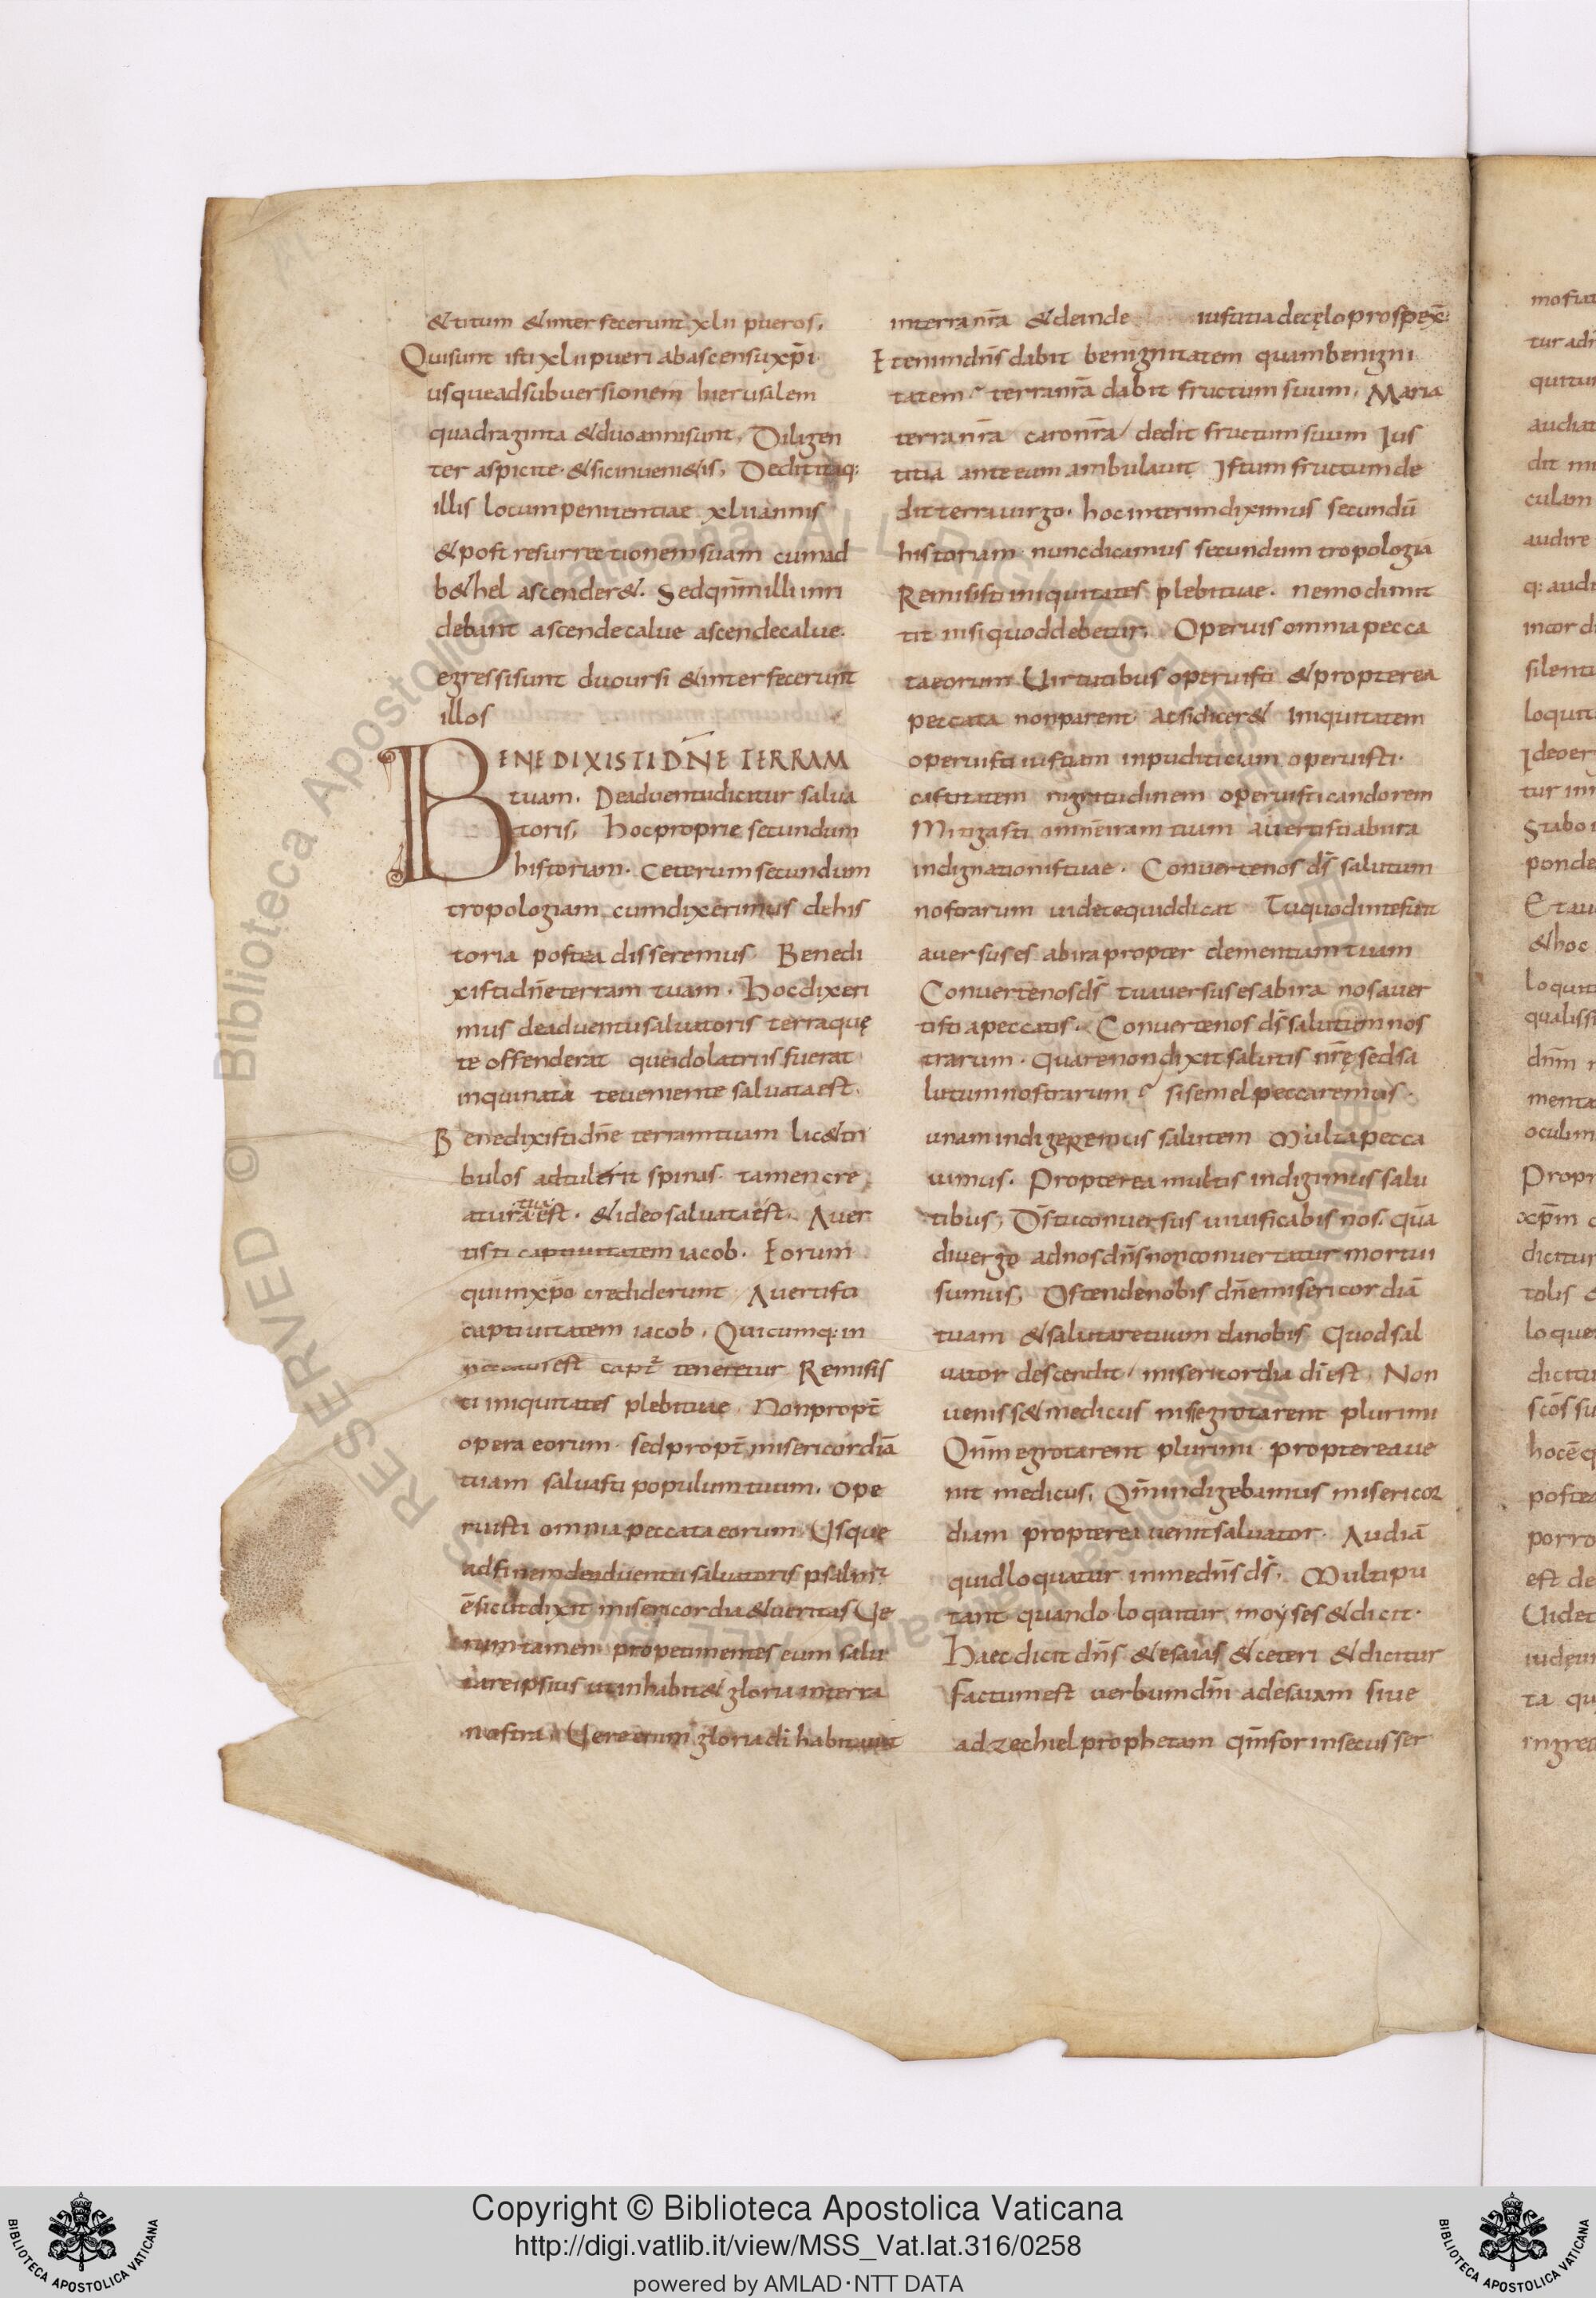 & titum & interfecerunt xlii pueros,
Qui sunt isti xlii pueri ab ascensu xp̄i
usque ad subversionem hierusalem
quadraginta & duo anni sunt, Diligen
ter aspicite · & sic inueni&is, Dedit itaq:
illis locum penitentiae xlii annis
& post resurrectionem suam cum ad
b&hel ascender&. Sed qnm̄ illi inri
debant ascende calue ascende calue.
egressi sunt duo ursi & interfecerunt
illos
BENEDIXISTI DN̄E TERRAM
tuam. De aduentu dicitur salua
toris, hoc proprie secundum
historiam. ceterum secundum
tropologiam cum dixerimus de his
toria postea disseremus. Benedi
xisti dn̄e terram tuam. hoc dixeri
mus de aduentu saluatoris terra quę
te offenderat que idolatriis fuerat
inquinata te ueniente saluata est.
Benedixisti dn̄e terram tuam lic& tri
bulos adtulerit spinas. tamen cre
atura tua est. & ideo saluata est. Auer
tisti captiuitatem iacob. Eorum
qui in xp̄o crediderunt Auertisti
captiuitatem iacob, Quicumq: in
captꝰ teneretur Remisis
ti iniquitates plebi tuae Non propt̄
opera eorum sed propt̄ misericordiā
tuam saluasti populum tuum. Ope
ruisti omnia peccata eorum Usque
ad finem de aduentu saluatoris psalmꝰ
ē sicut dixit misericordia & ueritas Ue
rum tamen prope timentes eum salu
tare ipsius ut inhabit& gloria in terra
nostra. Uere enim gloria dī habitauit
in terra nr̄a & deinde iustitia de cęlo prospex̄
Etenim dn̄s dabit benignitatem quam benigni
tatem? terra nr̄a dabit fructum suum, Maria
terra nr̄a caro nr̄a dedit fructum suum Ius
titia ante eum ambulauit Istum fructum de
dit terra uirgo. hoc interim diximus secundū
historiam nunc dicamus secundum tropologiā
Remisisti iniquitates plebi tuae. nemo dimit
tit nisi quod debetur, Operuis omnia pecca
ta eorum Uirtutibus operuisti & propterea
peccata non parent ac si dicer& Iniquitatem
operuisti iustiam inpuditiciam operuisti.
castitatem nigritudinem operuisti candorem
Mitigasti omnē iram tuam auertisti ab ira
indignationis tuae. Conuerte nos dś salutum
nostrarum uidete quid dicat Tu quod intefuit
auersus es ab ira propter clementiam tuam
Conuerte nos dś tu auersus es ab ira nos auer
tisti a peccatis. Conuerte nos dś salutem nos
trarum. quare non dixit salutis nr̄ę sed sa
lutum nostrarum? si semel peccaremus.
unam indigeremus salutem Multa pecca
uimus. Propterea multis indigimus salu
tibus, Dś tu conuersus uiuificabis nos. quā
diu ergo ad nos dn̄s non conuertatur mortui
sumus, Ostende nobis dn̄e misericordiā
tuam & salutare tuum da nobis Quod sal
uator descendit misericordia dī est, Non
ueniss& medicus nisi egrotarent plurimi
Qnm̄ egrotarent plurimi propterea ue
nit medicus, Qnm̄ indigebamus misericor
diam propterea uenit saluator. Audiā
quid loquatur in me dn̄s dś, Multi pu
tant quando loquitur moyses & dicit.
Haec dicit dn̄s & esaias & ceteri & dicitur
factum est uerbum dn̄i ad esaiam siue
ad zechiel prophetam qm̄ forinsecus ser
Copyright © Biblioteca Apostolica Vaticana
http://digi.vatlib.it/view/MSS_Vat.lat.316/0258
powered by AMLAD·NTT DATA